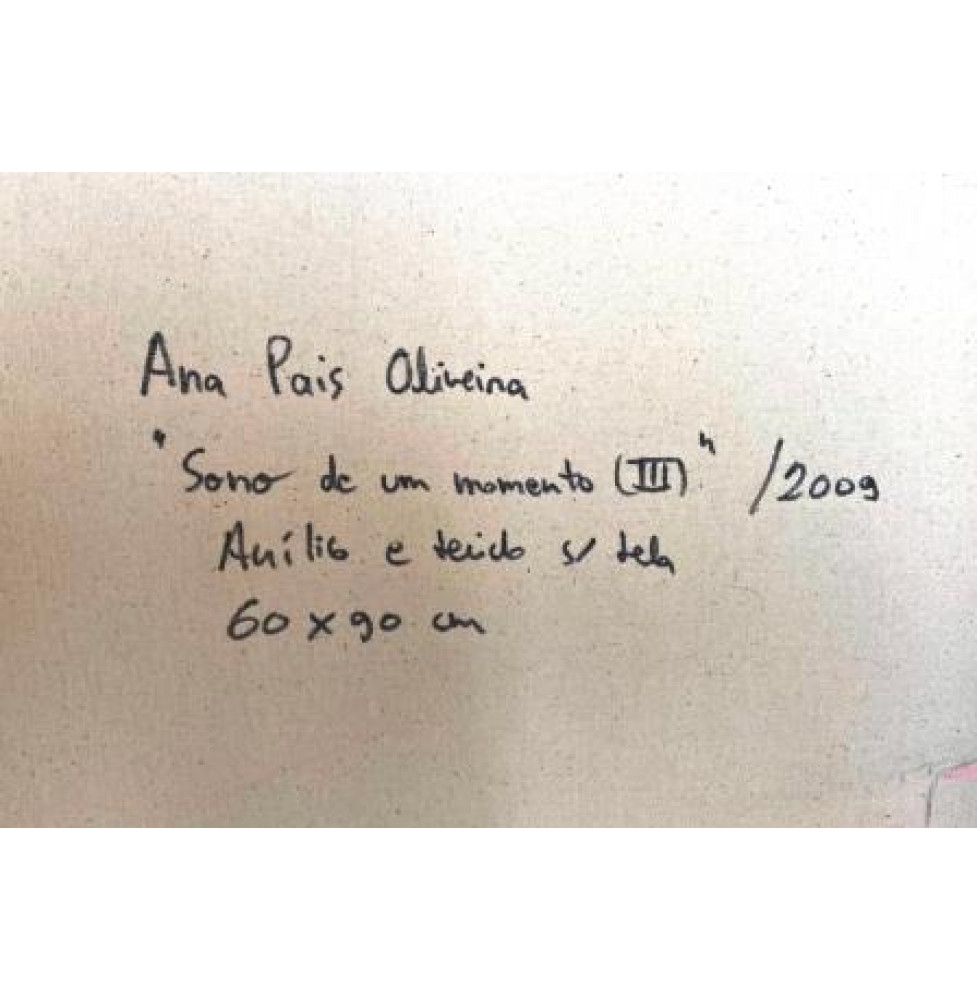 Ana Pais Oliveira
"Sono de um momento (III)" /2009
Acrílico e tecido s/ tela
60 x 90 cm